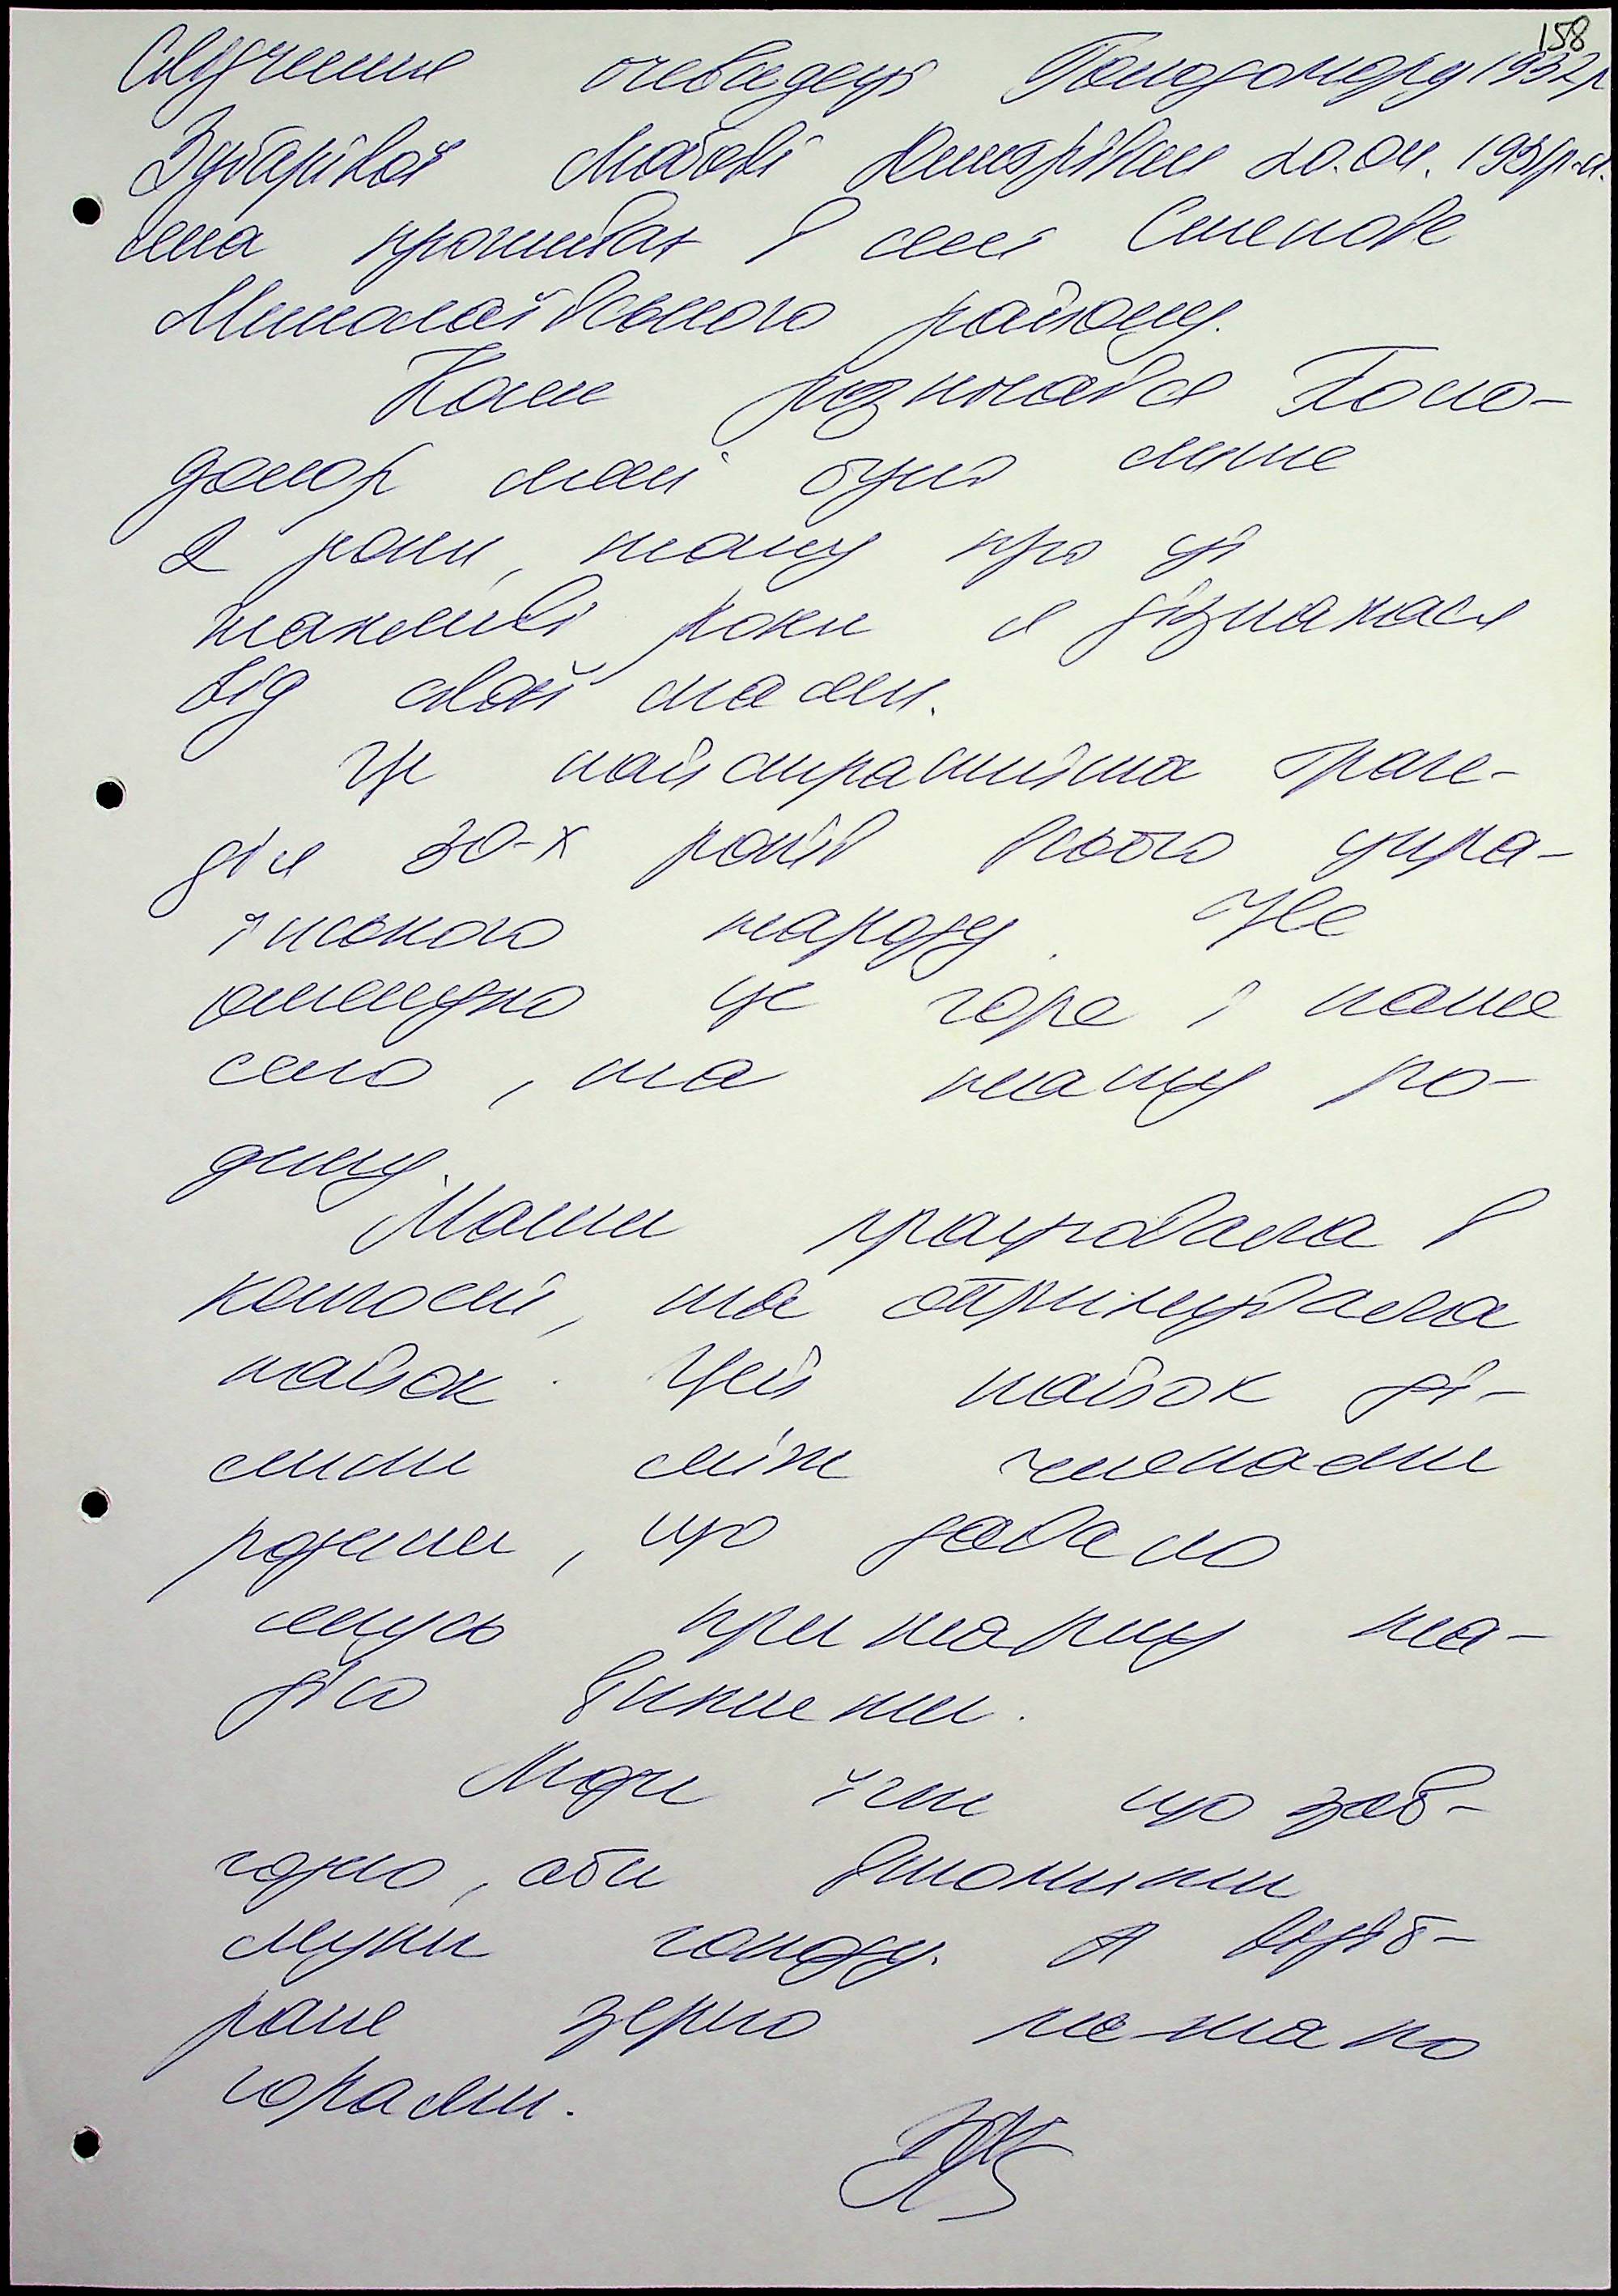 158
Свідчення очевидця Голодомору 1932р
Зубарєвої Любові Дмитрівни 20.04.1931р.н.
яка проживає в селі Степове
Миколаївського району.
Коли розпочався Голо-
домор мені було лише
2 роки, тому про ці
жахливі роки я дізналася
від своєї мами.
Це найстрашніша траге-
дія 30-х років всього укра-
їнського народу. Не
оминуло це горе і наше
село, та нашу ро-
дину.
Мати працювала в
колгоспі, та отримувала
пайок. Цей пайок ді-
лили між членами
родини, що давало
якусь примарну на-
дію вижити.
Люди їли що зав-
годно, аби втолити
муки голоду. А відіб-
ране зерно лежало
горами.